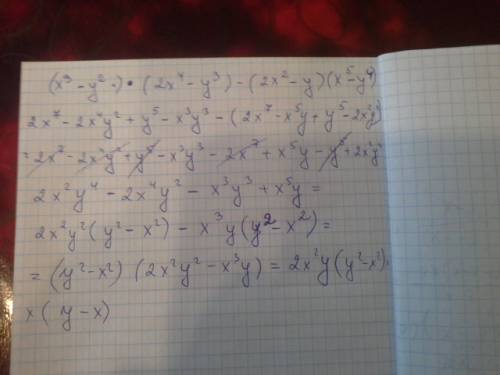 (x³ - y²) • (2x⁴ - y³) - (2x² - y)(x⁵ - y⁴)
2x⁷ - 2x⁴y² + y⁵ - x³y³ - (2x⁷ - x⁵y + y⁵ - 2x²y⁴)
= 2x⁷ - 2x⁴y² + y⁵ - x³y³ - 2x⁷ + x⁵y - y⁵ + 2x²y⁴
2x²y⁴ - 2x⁴y² - x³y³ + x⁵y =
2x²y²(y² - x²) - x³y(y² - x²) =
= (y² - x²) (2x²y² - x³y) = 2x²y(y² - x²)·
x ( y - x)